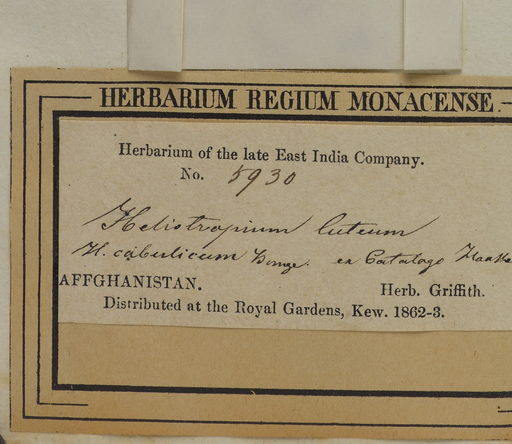 HERBARIUM REGIUM MONACENSE.
Herbarium of the late East India Company.
No. 5930
Heliotropium luteum
H. cabulicum Bunge. ex Catalogo
AFFGHANISTAN. Herb. Griffith.
Distributed at the Royal Gardens, Kew. 1862-3.